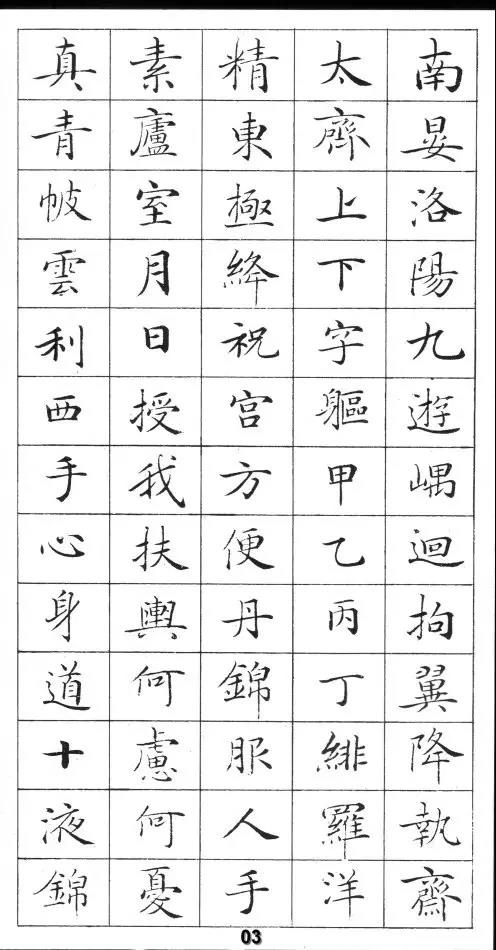 南晏洛陽九遊嵎迴拘翼降執齋
太齊上下字軀甲乙丙丁緋羅洋
精東極絳祝宮方便丹錦服人手
素廬室月日授我扶輿何慮何憂
真青帔雲利西手心身道十液錦
03